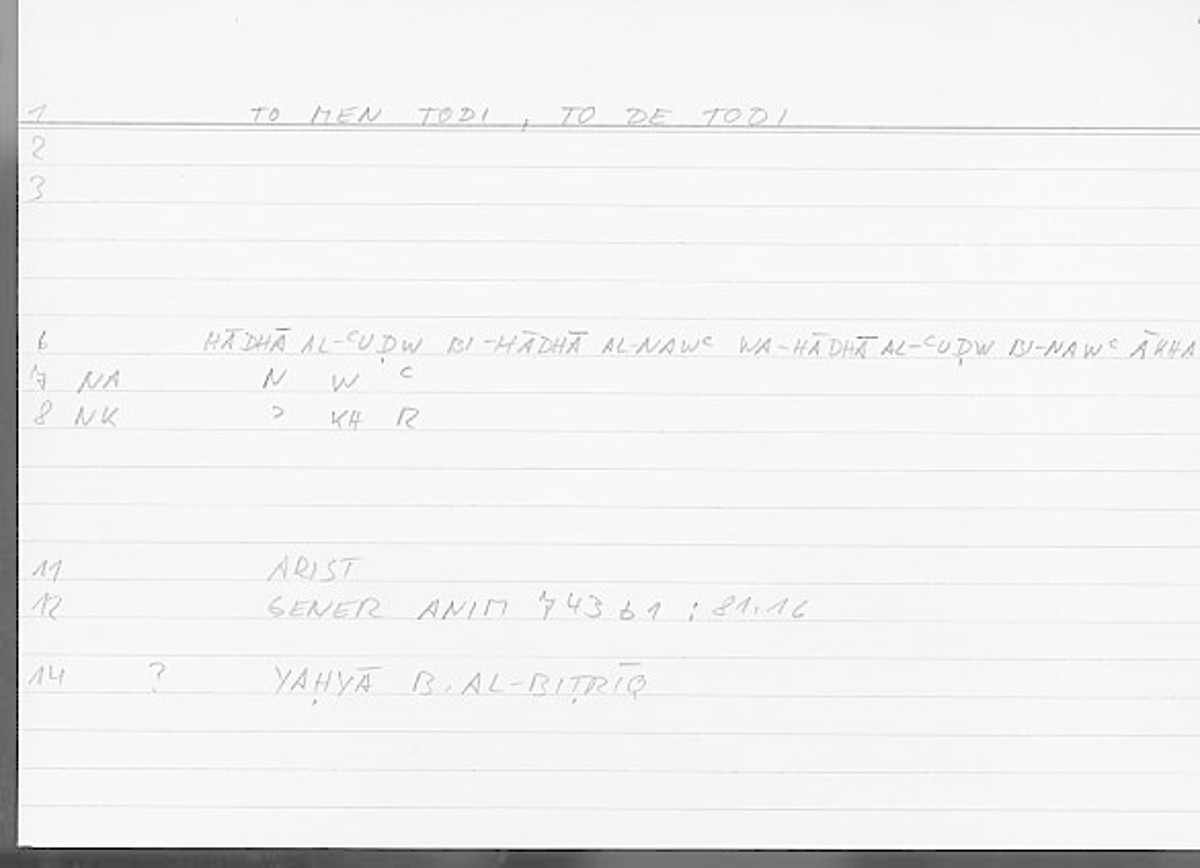 1 TO MEN TODI, TO DE TODI
2
3
6 HĀDHĀ AL-ʿUḌW BI-HĀDHĀ AL-NAWʿ WA-HĀDHĀ AL-ʿUḌW BI-NAWʿ ĀKHA
7 NA N W ʿ
8 NK ʾ KH R
11 ARIST
12 GENER ANIM 743 b 1 ; 81.16
14 ? YAḤYĀ B. AL-BIṬRĪQ